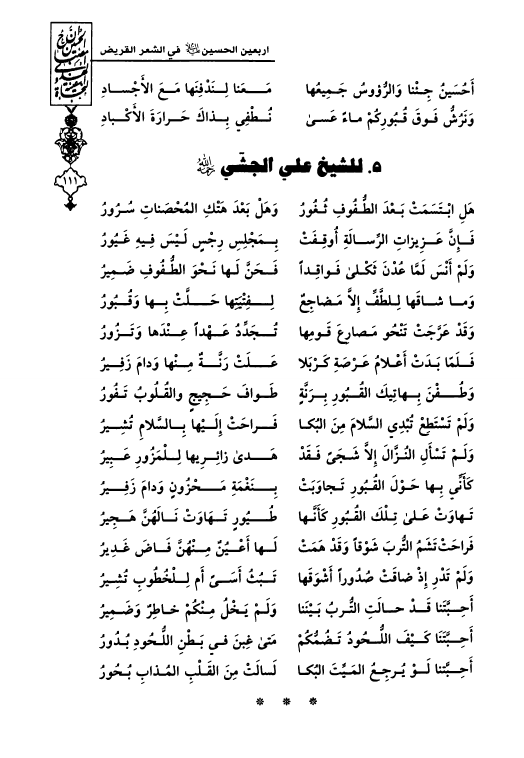 اربعين الحسين ﵇ في الشعر القريض
أَحُسَينُ جِئْنا وَالرُّؤوسُ جَميعُها مَعَنا لِنَدْفِنَها مَعَ الأَجْسادِ
وَنَرُشُّ فَوقَ قُبُورِكُمْ ماءً عَسىٰ نُطْفِي بِذاكَ حَرارَةَ الأَكْبادِ
٥. للشيخ علي الجشّي ﵀
١١١
هَلِ ابْتَسَمَتْ بَعْدَ الطُّفُوفِ ثُغُورُ وَهَلْ بَعْدَ هَتْكِ المُحْصَناتِ سُرُورُ
فَإِنَّ عَزيزاتِ الرِّسالَةِ أُوقِفَتْ بِمَجْلِسِ رِجْسٍ لَيْسَ فِيهِ غَيُورُ
وَلَمْ أَنْسَ لَمَّا عُدْنَ ثَكْلىٰ فَواقِداً فَحَنَّ لَها نَحْوَ الطُّفُوفِ ضَمِيرُ
وَما شاقَها لِلطَّفِّ إِلاَّ مَضاجِعٌ لِفِتْيَتِها حَلَّتْ بِها وَقُبُورُ
وَقَدْ عَرَّجَتْ تَنْحُو مَصارِعَ قَومِها تُجَدِّدُ عَهْداً عِنْدَها وَتَزُورُ
فَلَمّا بَدَتْ أَعْلامُ عَرْصَةِ كَرْبَلا عَلَتْ رَنَّةٌ مِنْها وَدامَ زَفِيرُ
وَطُفْنَ بِهاتِيكَ القُبُورِ بِرَنَّةٍ طَوافَ حَجِيجٍ والقُلُوبُ تَفُورُ
وَلَمْ تَسْتَطِعْ تُبْدِي السَّلامَ مِنَ البُكا فَراحَتْ إِلَيْها بِالسَّلامِ تُشِيرُ
وَلَمْ تَسْأَلِ النُّزّالَ إِلاَّ شَجىً فَقَدْ هَدىٰ زائِرِيها لِلْمَزُورِ عَبِيرُ
كَأَنِّي بِها حَوْلَ القُبُورِ تَجاوَبَتْ بِنَغْمَةِ مَحْزُونٍ وَدامَ زَفِيرُ
تَهاوَتْ عَلىٰ تِلْكَ القُبُورِ كَأَنَّها طُيُورٌ تَهاوَتْ نالَهُنَّ هَجِيرُ
فَراحَتْ تَشُمُّ التُّرْبَ شَوْقاً وَقَدْ هَمَتْ لَها أَعْيُنٌ مِنْهُنَّ فَاضَ غَدِيرُ
وَلَمْ تَدْرِ إِذْ ضاقَتْ صُدُوراً أَشَوْقَها تَبُثُّ أَسىً أَم لِلْخُطُوبِ تُشِيرُ
أَحِبَّتَنا قَدْ حالَتِ التُّرْبُ بَيْنَنا وَلَمْ يَخْلُ مِنْكُمْ خاطِرٌ وَضَمِيرُ
أَحِبَّتَنا كَيْفَ اللُّحُودُ تَضُمُّكُمْ مَتىٰ غِبْنَ في بَطْنِ اللُّحودِ بُدُورُ
أَحِبَّتَنا لَوْ يُرجِعُ المَيِّتَ البُكا لَسالَتْ مِنَ القَلْبِ المُذابِ بُحُورُ
* * *